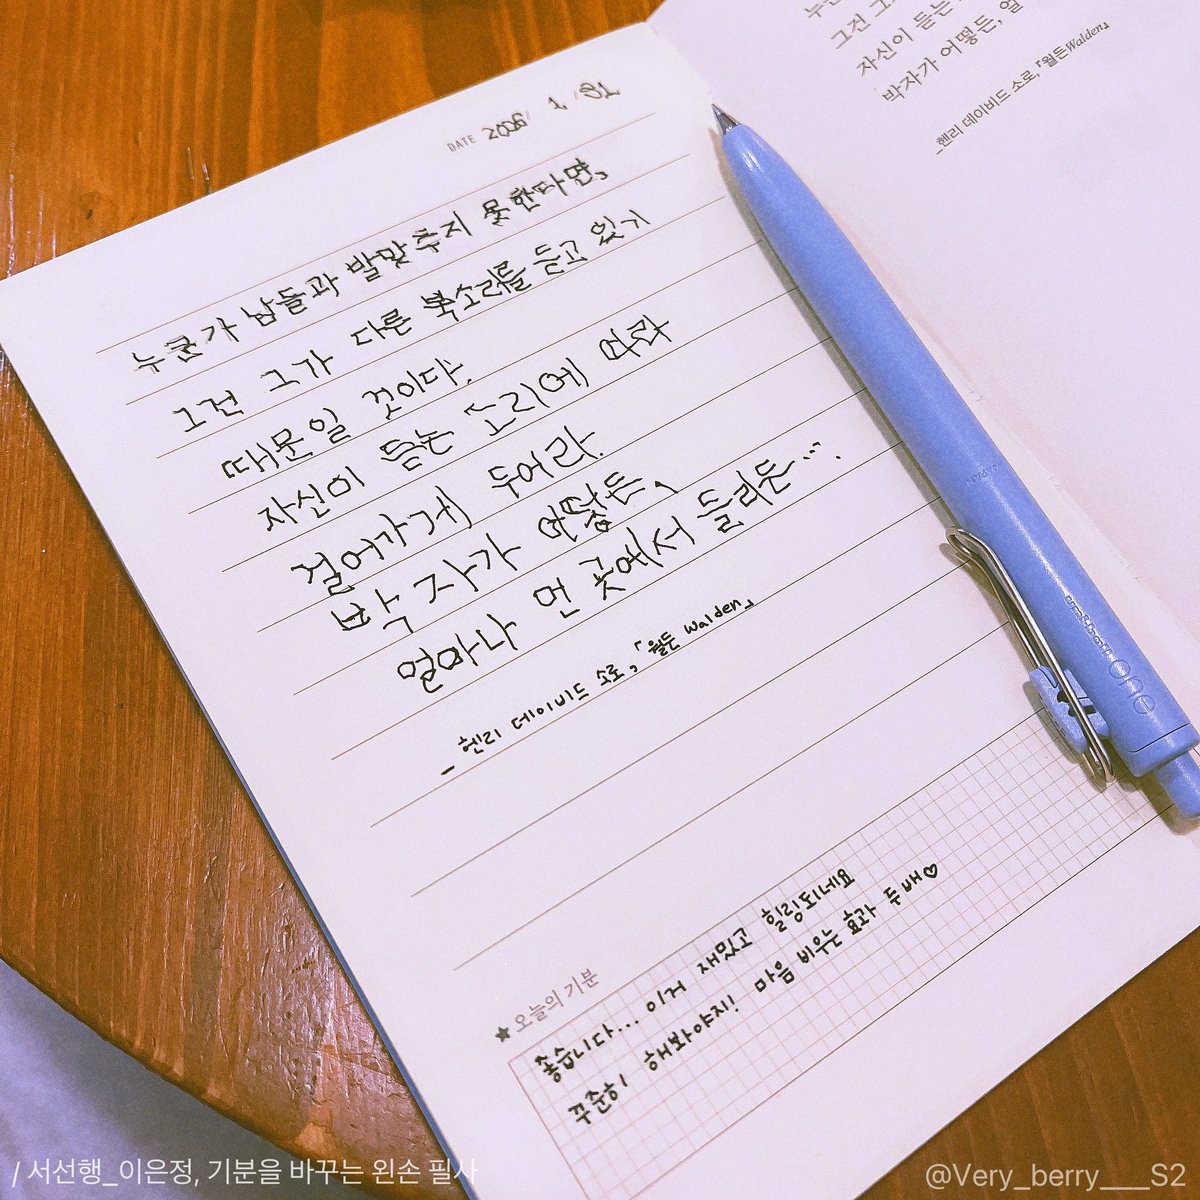 DATE 2026/ 1, /31
누군가 남들과 발맞추지 못한다면,
그건 그가 다른 북소리를 듣고 있기
때문일 것이다.
자신이 듣는 소리에 따라
걸어가게 두어라.
박자가 어떻든,
얼마나 먼 곳에서 들리든….
_ 헨리 데이비드 소로, 『월든 Walden』
★ 오늘의 기분
좋습니다... 이거 재밌고 힐링되네요
꾸준히 해봐야지! 마음 비우는 효과 두 배♡
그건 그
자신이 듣는
박자가 어떻든, 얼
_헨리 데이비드 소로, 『월든Walden』
JAPAN
one
/ 서선행_이은정, 기분을 바꾸는 왼손 필사
@Very_berry___S2